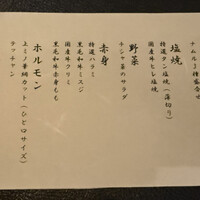 ナムル3種盛合せ
塩焼
特選タン塩焼(薄切り)
国産牛ヒレ塩焼
野菜
チシャ菜のサラダ
赤身
特選ハラミ
黒毛和牛ミスジ
国産牛クリミ
黒毛和牛赤身もも
ホルモン
上ミノ華網カット(ひと口サイズ)
テッチャン